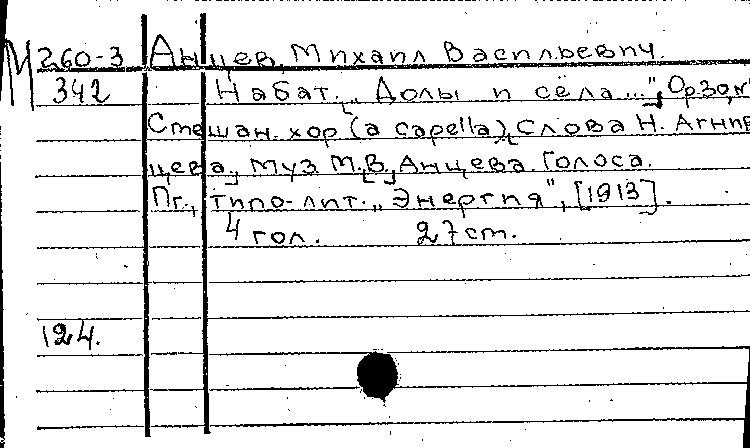 М 260-3 Анцев, Михаил Васильевич.
342 Набат. [„Долы и сёла..."],
Смешан. хор (a capella). Слова Н. Агнив
цева, муз. М.[В.] Анцева. Голоса.
Пг., типо-лит. „Энергия", [1913].
4 гол. 27 см.
124.